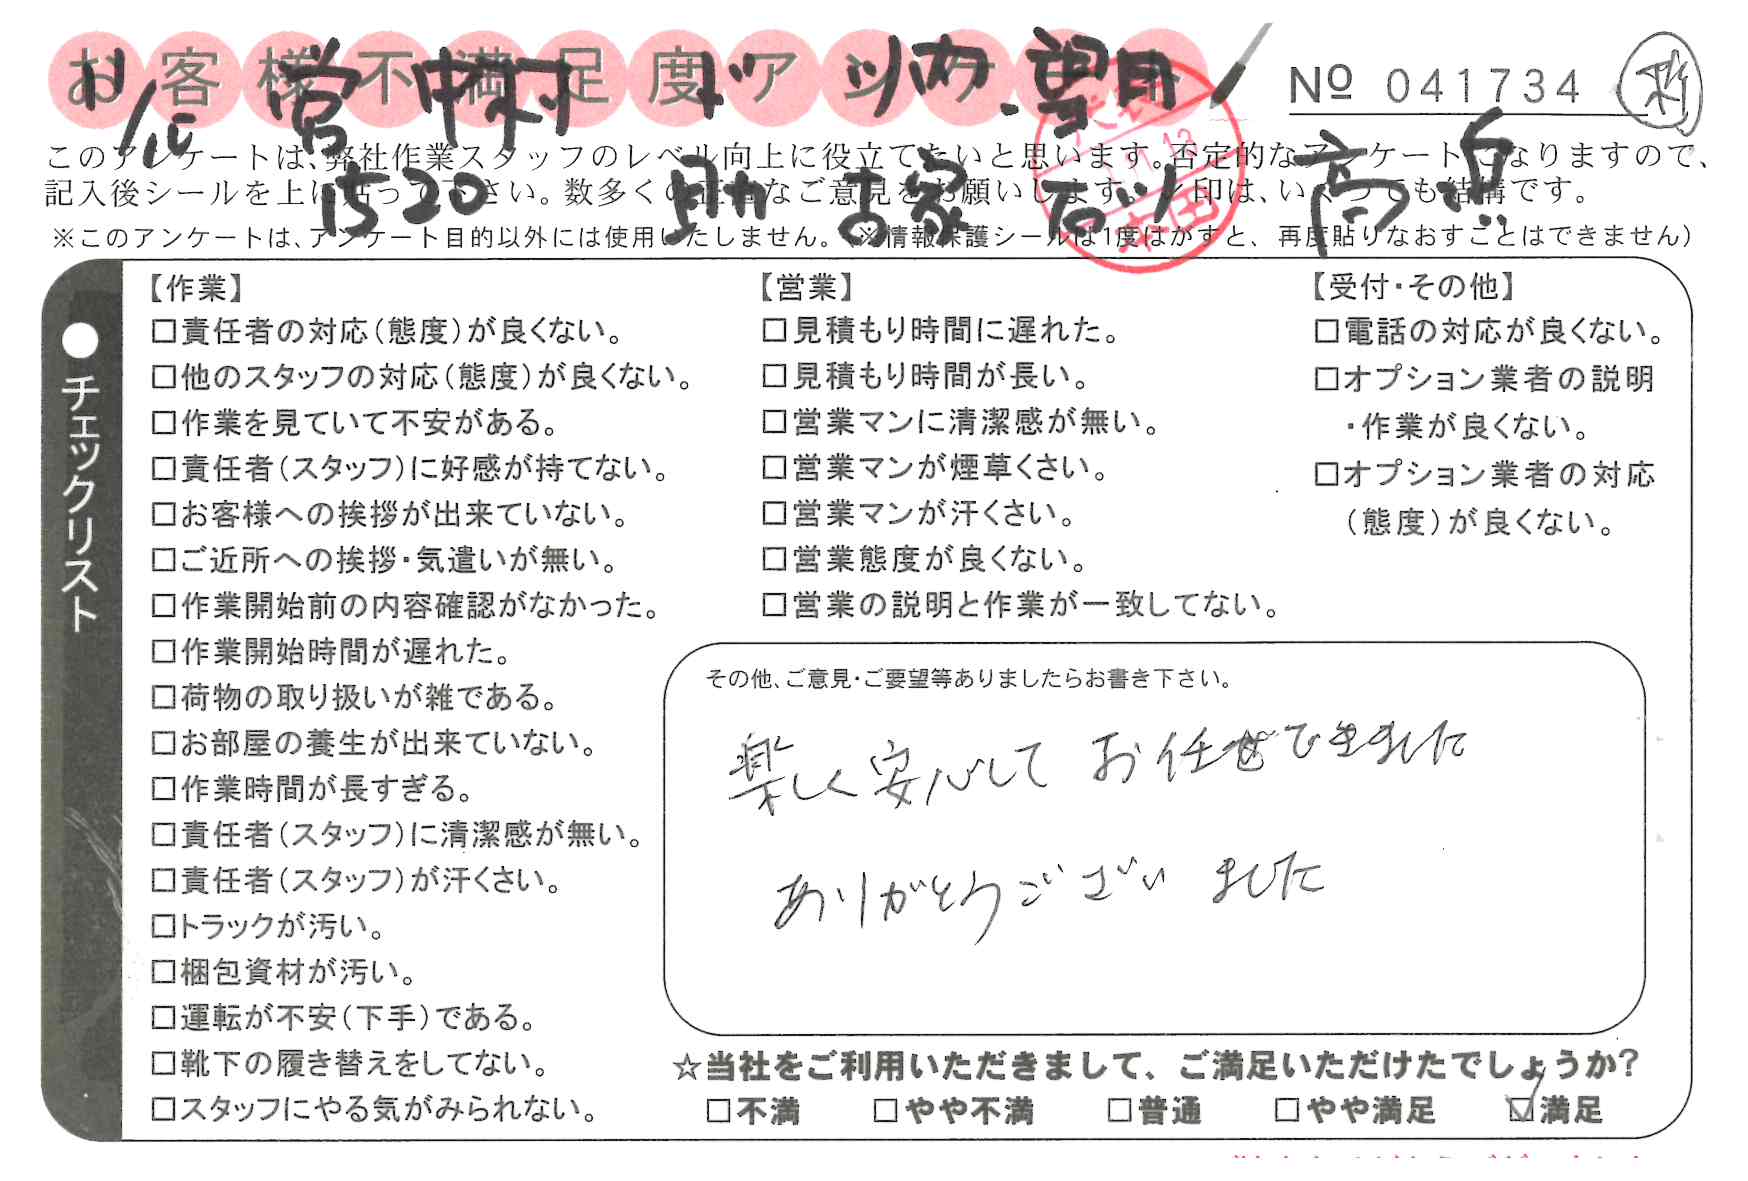 お客様不満足度アンケート
№ 041734
11/12 営 中村 ド ツ 以内 望月
このアンケートは、弊社作業スタッフのレベル向上に役立てたいと思います。否定的なアンケートになりますので、
1520 助 古家 石川 高
記入後シールを上に貼って下さい。数多くの正直なご意見をお願いします。レ印は、いくつでも結構です。
※このアンケートは、アンケート目的以外には使用いたしません。(※情報保護シールは1度はがすと、再度貼りなおすことはできません)
本田
●チェックリスト
【作業】
□責任者の対応(態度)が良くない。
□他のスタッフの対応(態度)が良くない。
□作業を見ていて不安がある。
□責任者(スタッフ)に好感が持てない。
□お客様への挨拶が出来ていない。
□ご近所への挨拶・気遣いが無い。
□作業開始前の内容確認がなかった。
□作業開始時間が遅れた。
□荷物の取り扱いが雑である。
□お部屋の養生が出来ていない。
□作業時間が長すぎる。
□責任者(スタッフ)に清潔感が無い。
□責任者(スタッフ)が汗くさい。
□トラックが汚い。
□梱包資材が汚い。
□運転が不安(下手)である。
□靴下の履き替えをしてない。
□スタッフにやる気がみられない。
【営業】
□見積もり時間に遅れた。
□見積もり時間が長い。
□営業マンに清潔感が無い。
□営業マンが煙草くさい。
□営業マンが汗くさい。
□営業態度が良くない。
□営業の説明と作業が一致してない。
【受付・その他】
□電話の対応が良くない。
□オプション業者の説明
・作業が良くない。
□オプション業者の対応
(態度)が良くない。
その他、ご意見・ご要望等ありましたらお書き下さい。
楽しく安心して お任せできました
ありがとうございました
☆当社をご利用いただきまして、ご満足いただけたでしょうか?
□不満 □やや不満 □普通 □やや満足 ☑満足